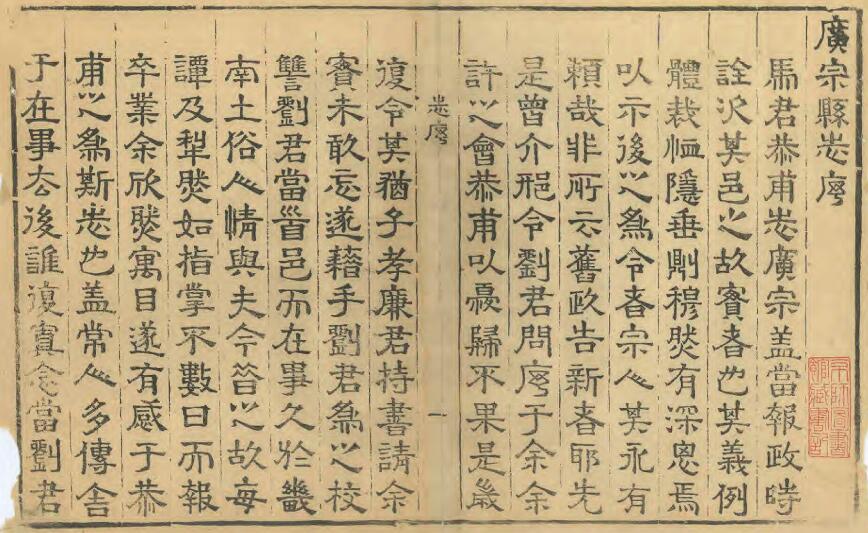 廣宗縣志序
馬君恭甫志廣宗盖當報政時
詮次其邑之故實者也其義例
體裁恤隱垂則穆然有深思焉
以示後之為令者宗人其永有
賴哉非所云舊政告新者耶先
是曾介邢令劉君問序于余余
許之會恭甫以憂歸不果是歲
志序
一
復令其猶子孝廉君持書請余
實未敢忘遂藉手劉君為之校
讐劉君當首邑而在事久於畿
南土俗人情與夫今昔之故每
譚及犁然如指掌不數日而報
卒業余欣然寓目遂有感于恭
甫之為斯志也盖常人多傳舍
于在事去後誰復寘念當劉君